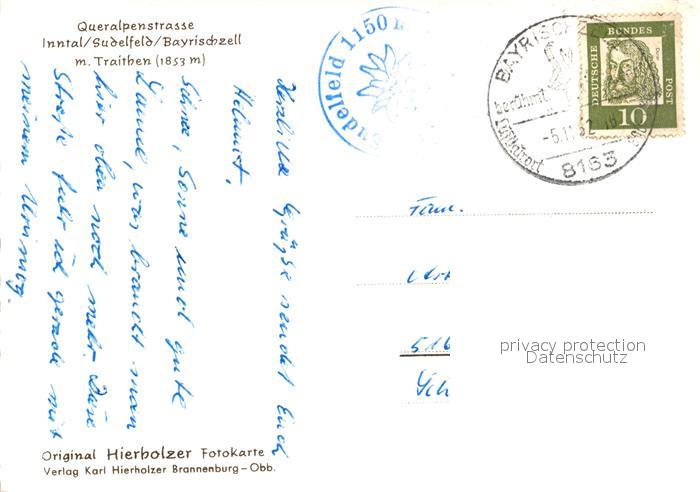 Queralpenstrasse
Inntal/Sudelfeld/Bayrischzell
m. Traithen (1853 m)
Herzliche Grüße sendet Euch
Helmut.
Schnee, Sonne und gute
Laune, was braucht man
hier oben noch mehr. Diese
Straße fuhr ich gerade mit
meinem
Sudelfeld 1150
BAYRISCHZ
berühmt
Luftkurort
-5.11.62
8163
DEUTSCHE BUNDES POST
10
Fam.
516
privacy protection
Datenschutz
Original Hierholzer Fotokarte
Verlag Karl Hierholzer Brannenburg-Obb.